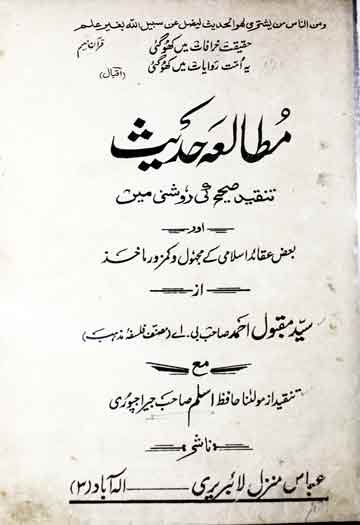 ومن الناس من یشتری لهو الحدیث لیضل عن سبیل الله بغیر علم
قرآن
حقیقت خرافات میں کھو گئی
یہ اُمت روایات میں کھو گئی (اقبال)
مُطالعۂ حدیث
تنقید صحیح کی روشنی میں
اور
بعض عقائد اسلامی کے مجہول و کمزور ماخذ
از
سیّد مقبول احمد صاحب بی۔اے (مصنف فلسفہ مذہب)
مع
تنقید از مولٰنا حافظ اسلم صاحب جیراجپوری
ناشر
عباس منزل لائبریری ــــ الہ آباد (۳)